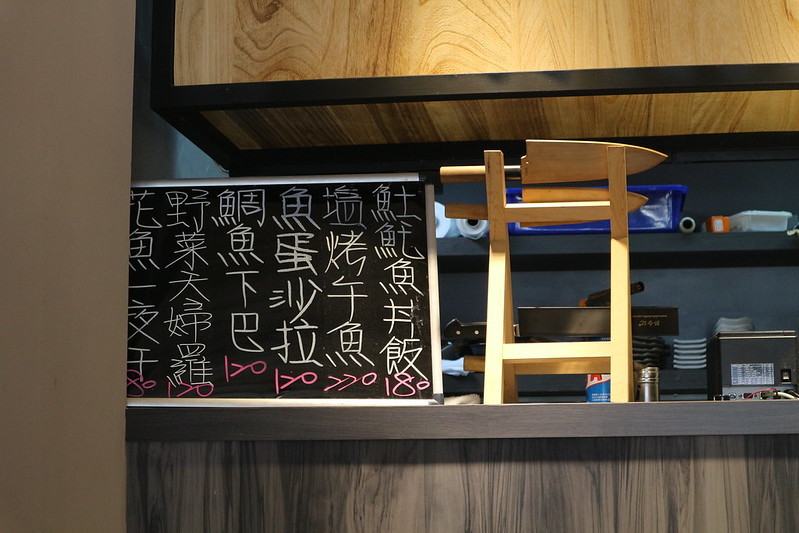 𩵚魠魚丼飯 180
塩烤午魚 220
魚蛋沙拉 120
鯛魚下巴 120
野菜天婦羅 120
花魚一夜干 80